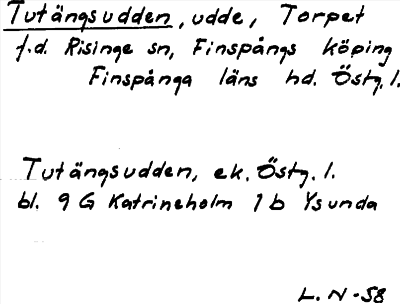 Tutängsudden, udde, Torpet
f.d. Risinge sn, Finspångs köping
Finspånga läns hd. Östg. l.
Tutängsudden, ek. Östg. l.
bl. 9 G Katrineholm 1 b Ysunda
L. N - 58